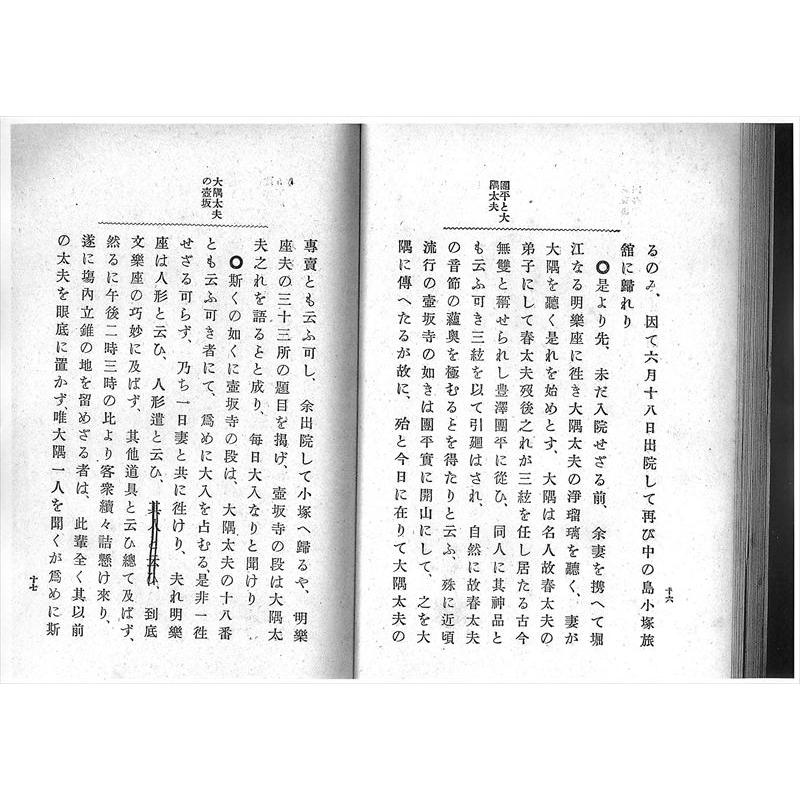 團平と大
隅太夫
るのみ、因て六月十八日出院して再び中の島小塚旅
舘に歸れり
◎是より先、未だ入院せざる前、余妻を携へて堀
江なる明樂座に徃き大隅太夫の淨瑠璃を聽く、妻が
大隅を聽く是れを始めとす、大隅は名人故春太夫の
弟子にして春太夫歿後之れが三絃を任し居たる古今
無雙と稱せられし豊澤團平に從ひ、同人に其神品と
も云ふ可き三絃を以て引廻はされ、自然に故春太夫
の音節の蘊奥を極むるとを得たりと云ふ、殊に近頃
流行の壺坂寺の如きは團平實に開山にして、之を大
隅に傳へたるが故に、殆と今日に在りて大隅太夫の
十六
大隅太夫
の壺坂
專賣とも云ふ可し、余出院して小塚へ歸るや、明樂
座夫の三十三所の題目を揭げ、壺坂寺の段は大隅太
夫之れを語るとと成り、毎日大入なりと聞けり
◎斯くの如くに壺坂寺の段は、大隅太夫の十八番
とも云ふ可き者にて、爲めに大入を占むる、是非一徃
せざる可らず、乃ち一日妻と共に徃けり、夫れ明樂
座は人形と云ひ、人形遣と云ひ、其人と云ひ、到底
文樂座の巧妙に及ばず、其他道具と云ひ總て及ばず、
然るに午後二時三時の比より客衆續々詰懸け來り、
遂に塲內立錐の地を留めざる者は、此輩全く其以前
の太夫を眼底に置かず、唯大隅一人を聞くが爲めに斯
十七